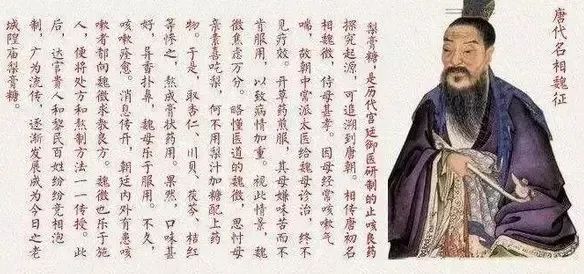 唐代名相魏征
梨膏糖，是历代宫廷御医研制的止咳良药
探究起源，可追溯到唐朝。相传唐初名
相魏徵，侍母甚孝。因母经常咳嗽气
喘，故朝中常派太医给魏母诊治，终不
见疗效。开草药煎服，其母嫌味苦而不
肯服用，以致病情加重。视此情景，魏
徵焦虑万分。略懂医道的魏徵，思忖母
亲素喜吃梨，何不用梨汁加糖配上药
物。于是，取杏仁、川贝、茯苓、桔红
等之，熬成膏状药用。果然，口味甚
好，异香扑鼻，魏母乐于服用。不久，
咳嗽痊愈。消息传开，朝廷内外有患咳
嗽者都向魏徵求教良方。魏徵也乐于施
人，便将处方和熬制方法一一传授。此
后，达官贵人和黎民百姓纷纷竞相泡
制，广为流传，逐渐发展成为今日之老
城隍庙梨膏糖。